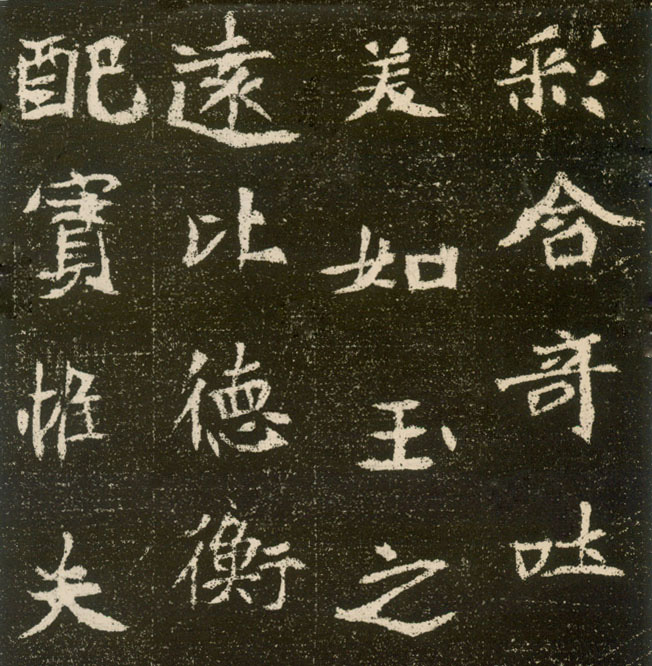 彩含奇吐
美如玉之
遠比德衡
配實惟夫